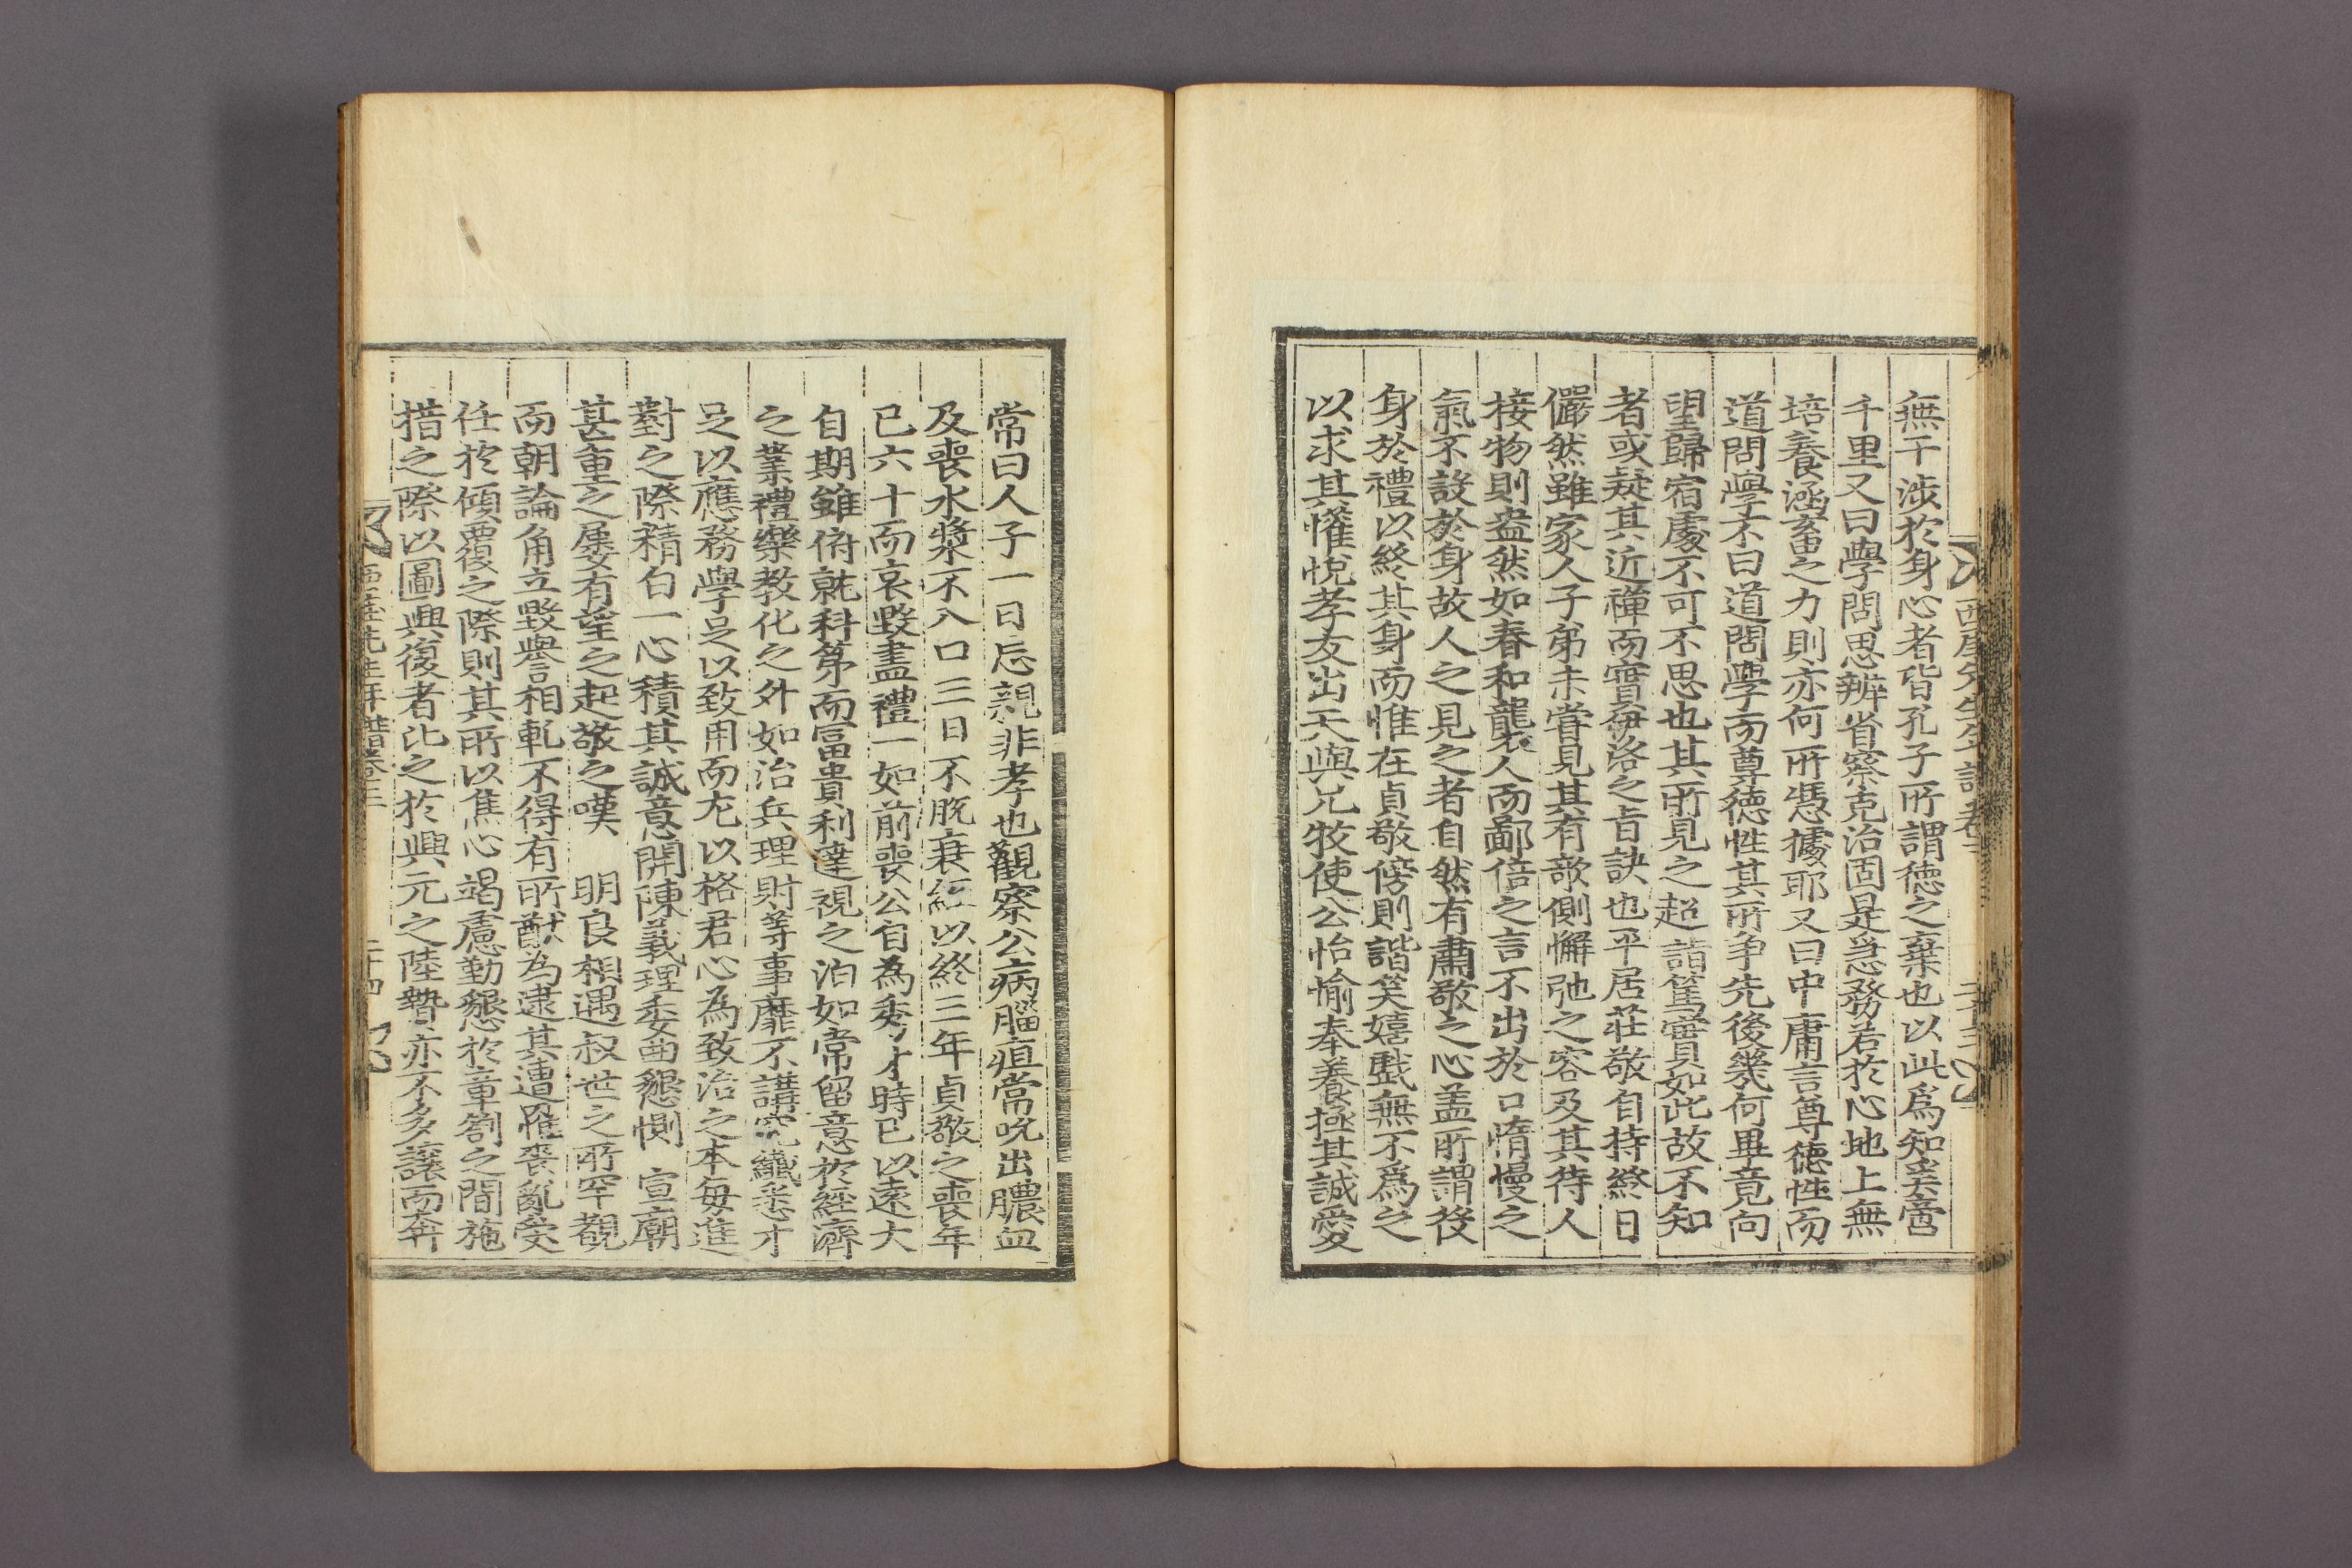 無干涉於身心者皆孔子所謂德之棄也以此爲知奚啻
千里又曰學問思辨省察克治固是急務若於心地上無
培養涵畜之力則亦何所憑據耶又曰中庸言尊德性而
道問學不曰道問學而尊德性其所爭先後幾何畢竟向
望歸宿處不可不思也其所見之超詣篤實如此故不知
者或疑其近禪而實伊洛之旨訣也平居莊敬自持終日
儼然雖家人子弟未嘗見其有欹側懈弛之容及其待人
接物則盎然如春和襲人而鄙倍之言不出於口惰慢之
氣不設於身故人之見之者自然有肅敬之心盖所謂發
身於禮以終其身而惟在貞敬傍則諧笑嬉戱無不爲之
以求其懽悅孝友出天與兄牧使公怡愉奉養極其誠愛
西厓先生年譜卷三
二十三
常曰人子一日忘親非孝也觀察公病腦疽常吮出膿血
及喪水漿不入口三日不脫衰絰以終三年貞敬之喪年
已六十而哀毀盡禮一如前喪公自為秀才時已以遠大
自期雖俯就科第而富貴利達視之泊如常留意於經濟
之業禮樂教化之外如治兵理財等事靡不講究纖悉才
足以應務學足以致用而尤以格君心為致治之本每進
對之際精白一心積其誠意開陳義理委曲懇惻 宣廟
甚重之屢有望之起敬之嘆 明良相遇叔世之所罕覩
而朝論角立毀譽相軋不得有所猷為逮其遭罹喪亂受
任於傾覆之際則其所以焦心竭慮勤懇於章劄之間施
措之際以圖興復者比之於興元之陸贄亦不多讓而奔
西厓先生年譜卷三
二十四